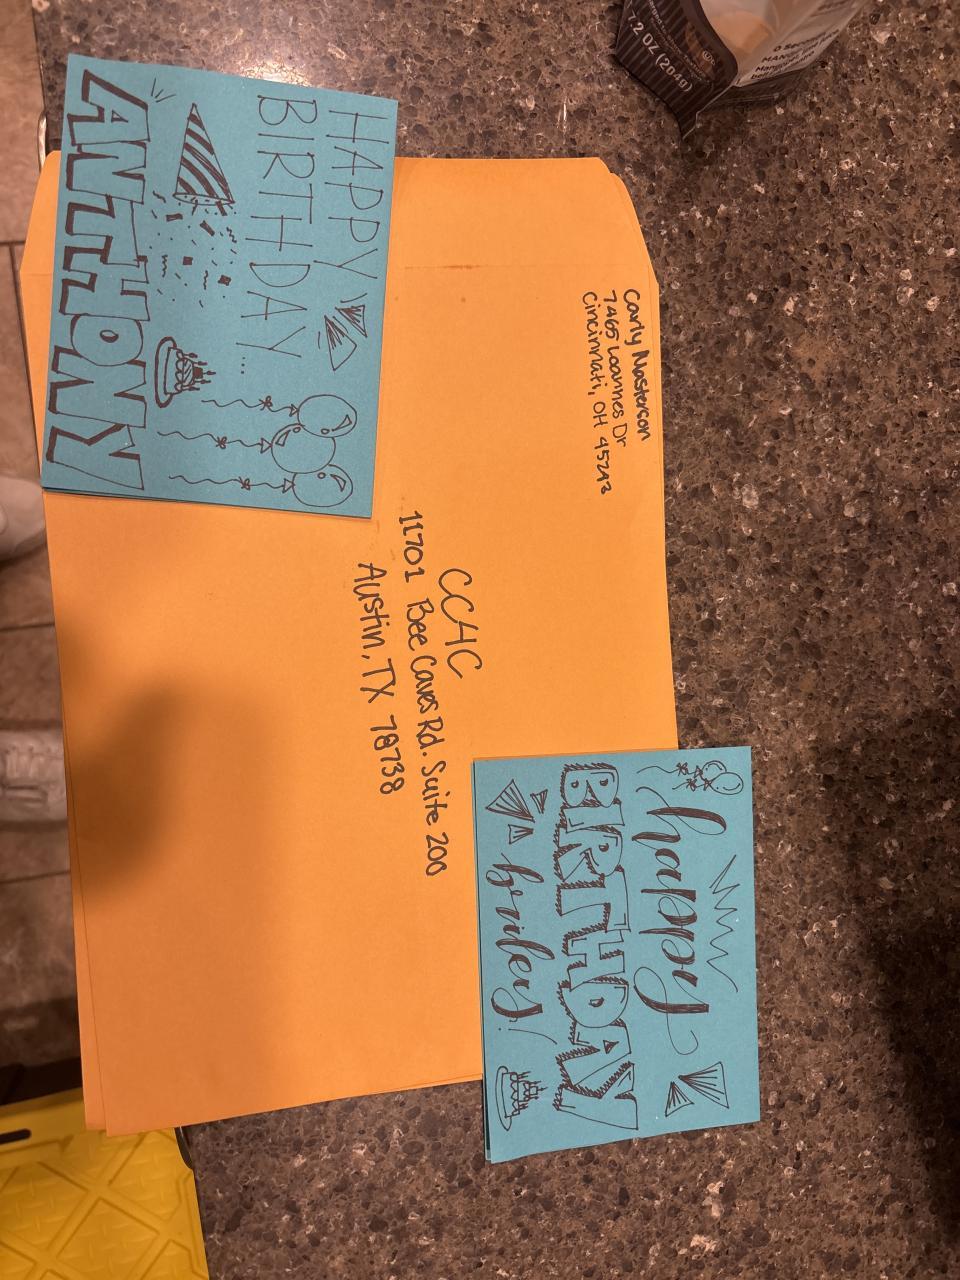 HAPPY
BIRTHDAY...
ANTHONY
Carly Masterson
7465 Loannes Dr
Cincinnati, OH 45243
CCHC
11701 Bee Caves Rd. Suite 200
Austin, TX 78738
happy
BIRTHDAY
briley!
7.2 OZ (204g)